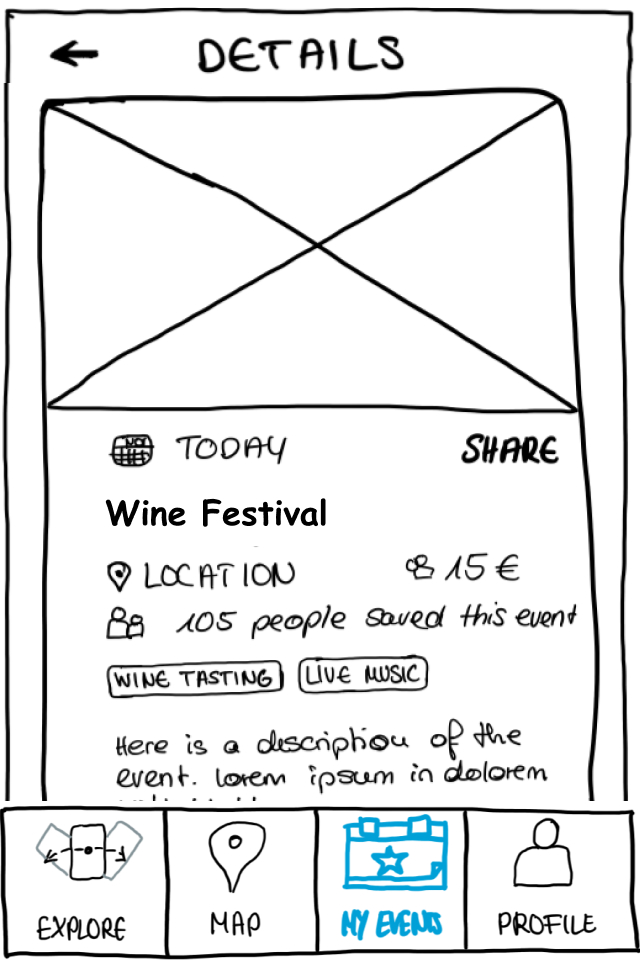 DETAILS
TODAY SHARE
Wine Festival
LOCATION 15 €
105 people saved this event
WINE TASTING LIVE MUSIC
Here is a description of the
event. Lorem ipsum in dolorem
EXPLORE MAP MY EVENTS PROFILE